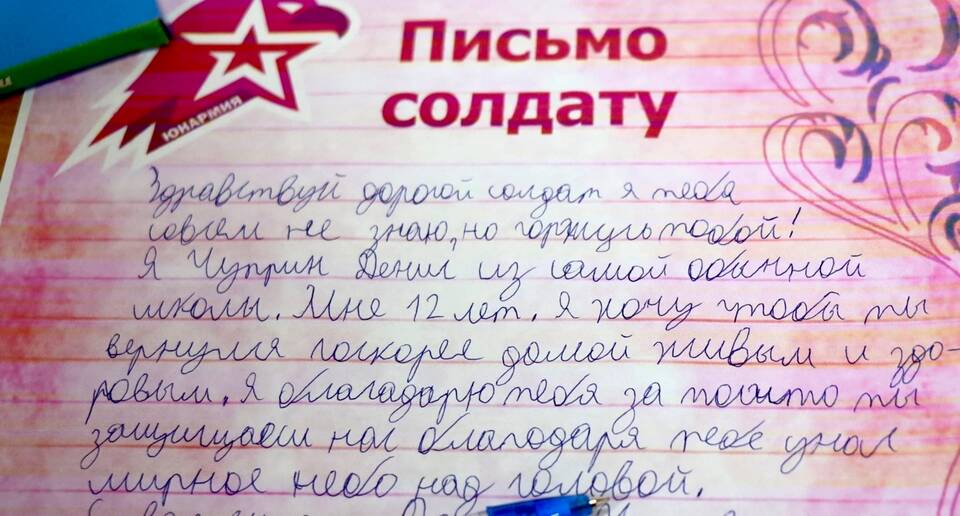 Письмо
солдату
ЮНАРМИЯ
Здравствуй дорогой солдат я тебя
совсем не знаю, но горжусь тобой!
Я Чуприн Денис из самой обычной
школы. Мне 12 лет. Я хочу чтобы ты
вернулся поскорее домой живым и здо-
ровым. Я благодарю тебя за то что ты
защищаеш нас благодаря тебе у нас
мирное небо над головой.